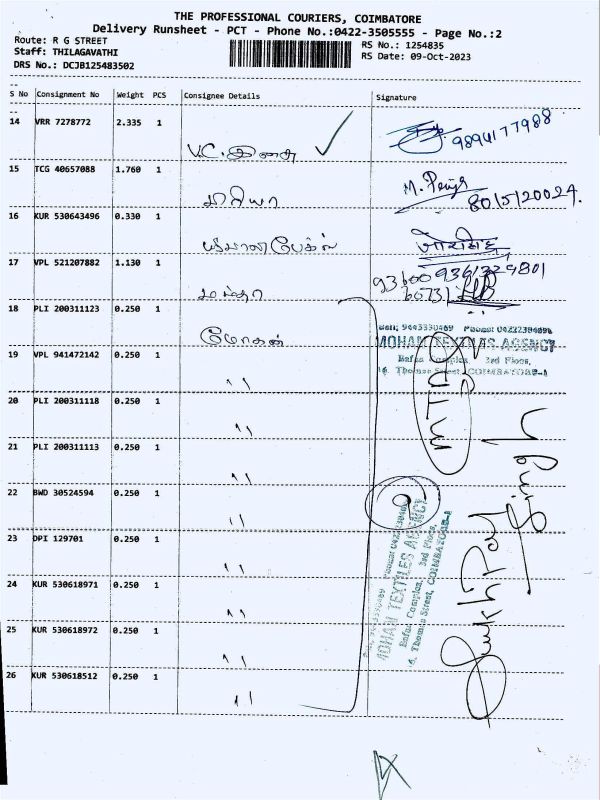 THE PROFESSIONAL COURIERS, COIMBATORE
Delivery Runsheet - PCT - Phone No.:0422-3505555 - Page No.:2
Route: R G STREET
RS No.: 1254835
Staff: THILAGAVATHI
RS Date: 09-Oct-2023
DRS No.: DCJB125483502
S No Consignment No Weight PCS Consignee Details Signature
14 VRR 7278772 2.335 1
V.C. இசை 9894177988
15 TCG 40657088 1.760 1
மரியா M. 80151 20024.
16 KUR 530643496 0.330 1
17 VPL 521207882 1.130 1
18 PLI 200311123 0.250 1
மோகன்
MOHAN TEXTILES AGENCY
3rd Floor,
Thomas Street, COIMBATORE-1
19 VPL 941472142 0.250 1
"
20 PLI 200311118 0.250 1
"
21 PLI 200311113 0.250 1
"
22 BWD 30524594 0.250 1
"
23 DPI 129701 0.250 1
"
24 KUR 530618971 0.250 1
"
25 KUR 530618972 0.250 1
"
26 KUR 530618512 0.250 1
"
MTA
Sukh Pal Singh
MOHAN TEXTILES AGENCY
3rd Floor,
Thomas Street, COIMBATORE-1